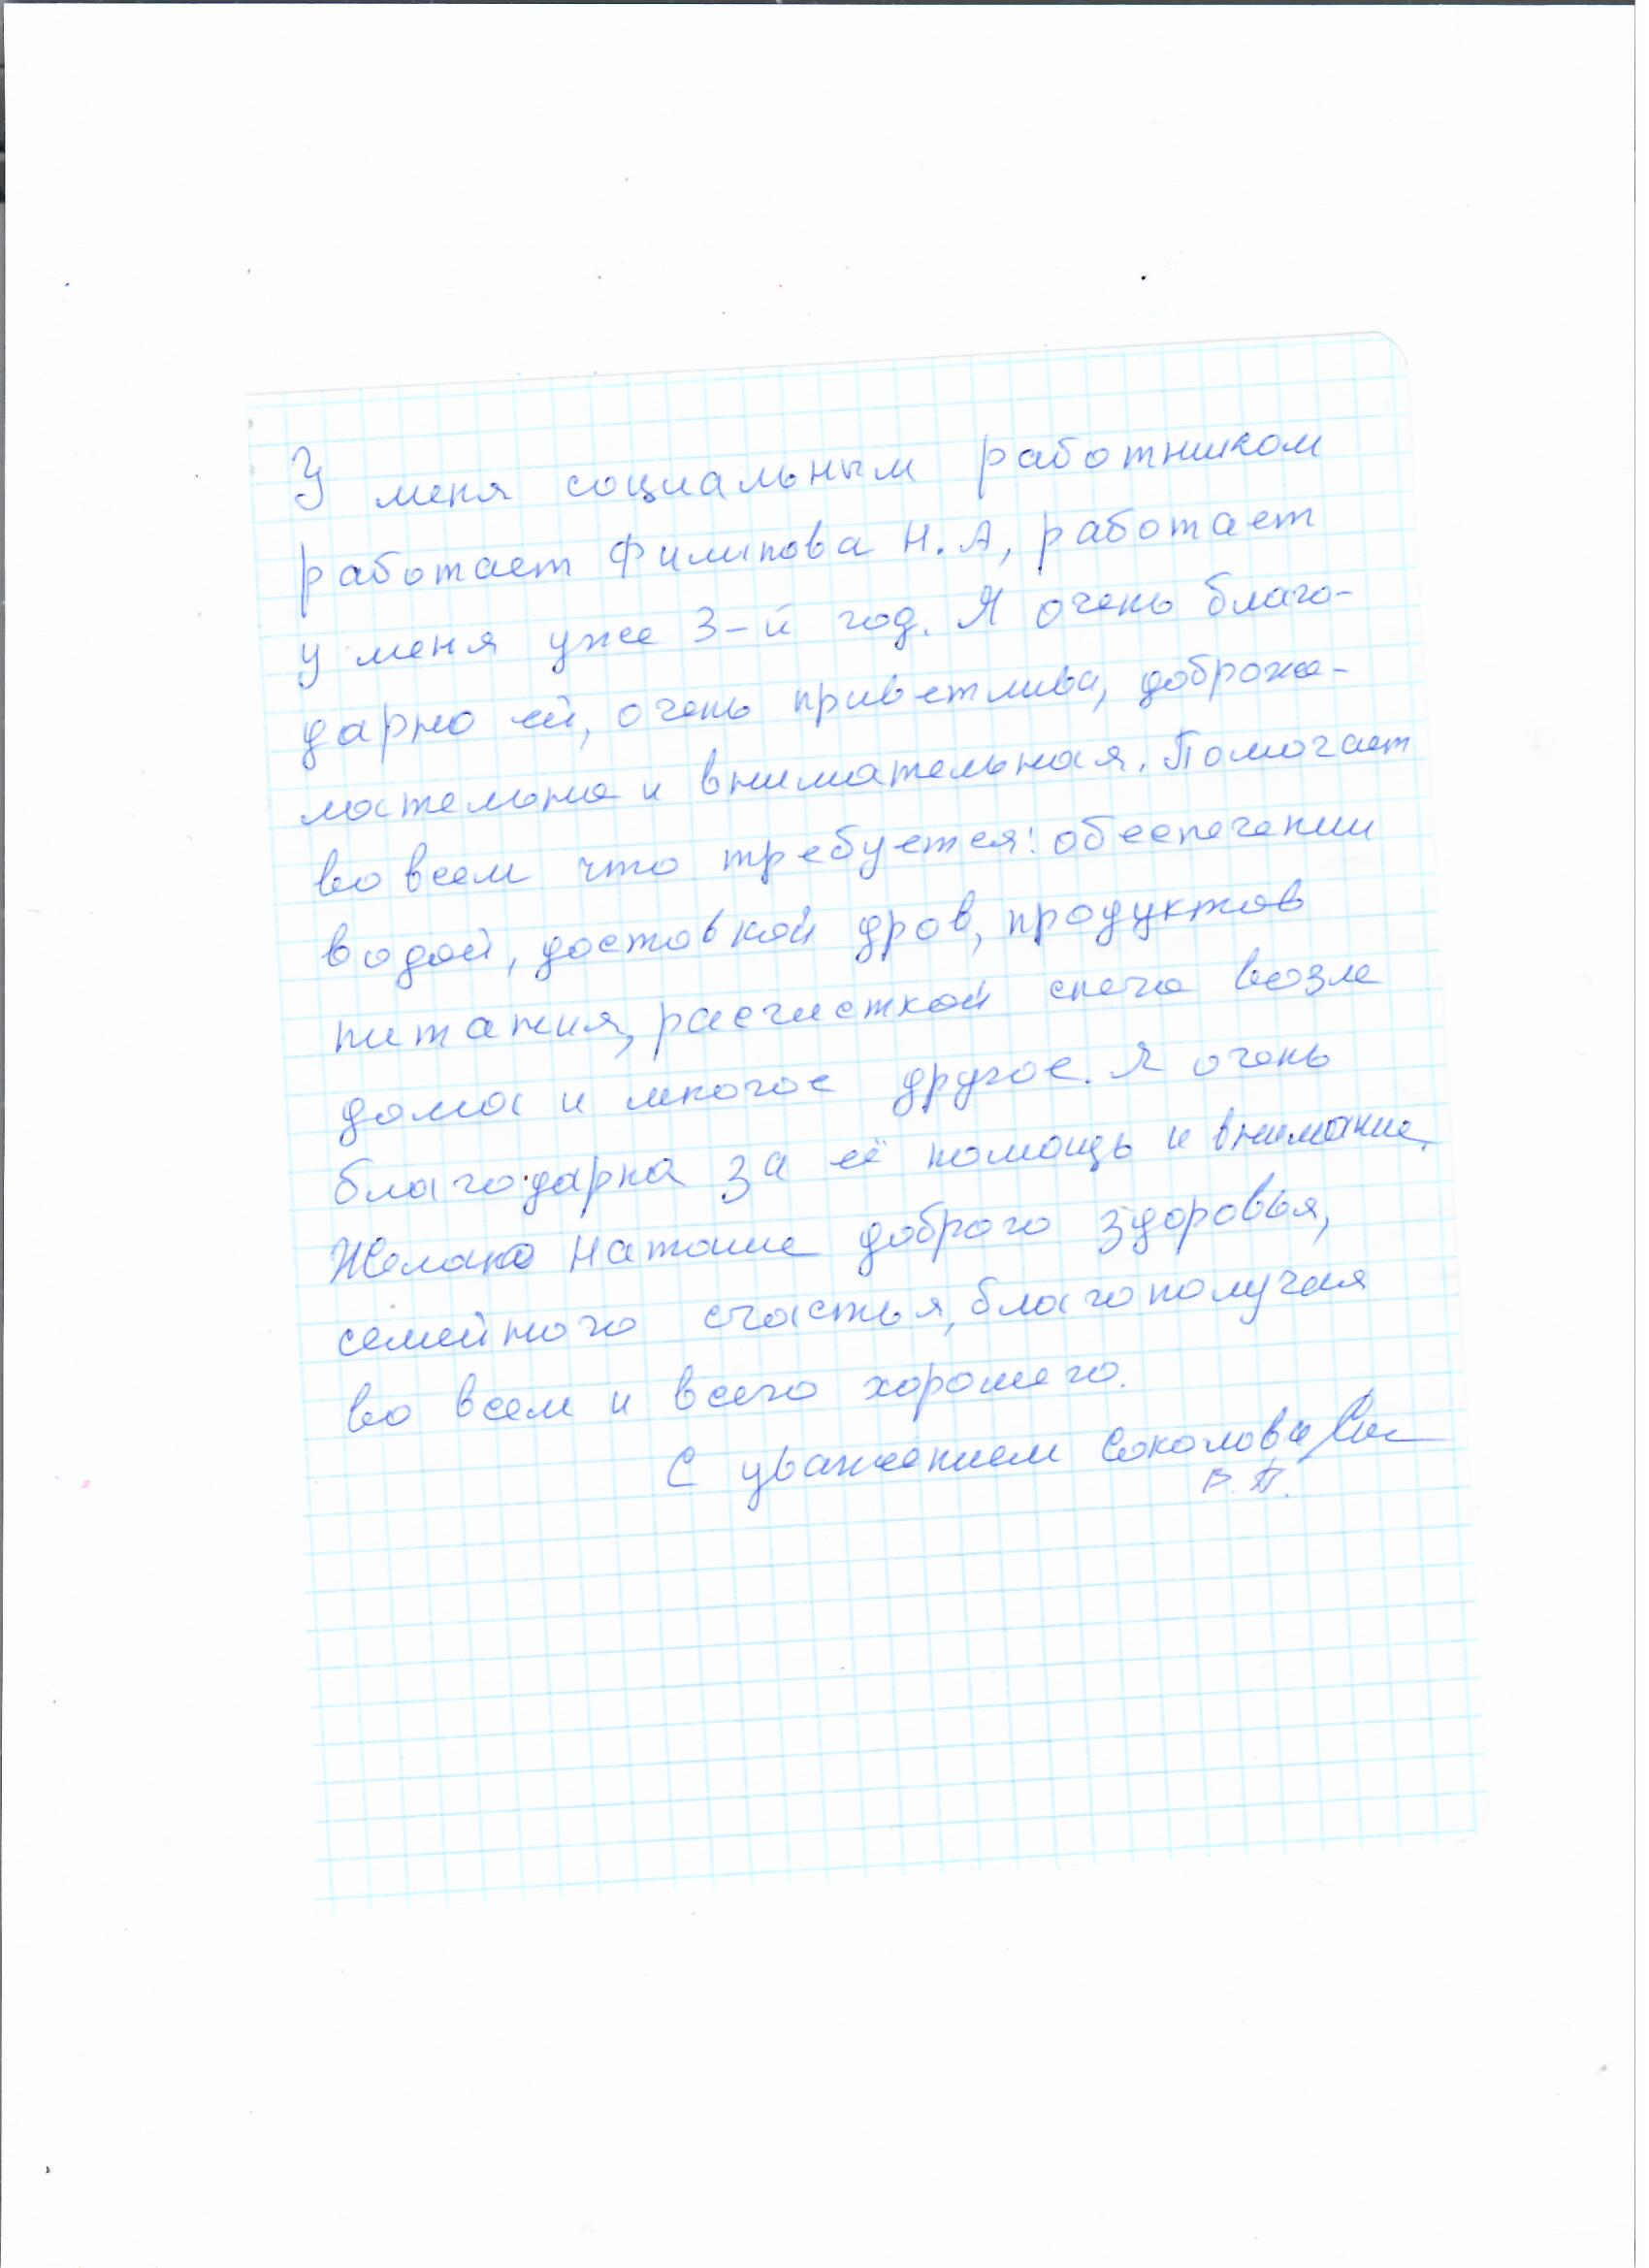 У меня социальным работником
работает Филипова Н.А, работает
у меня уже 3-й год. Я очень благо-
дарна ей, очень приветлива, доброже-
лательна и внимательная. Помогает
во всем что требуется: обеспечении
водой, доставкой дров, продуктов
питания, расчисткой снега возле
дома и многое другое. Я очень
благодарна за её помощь и внимание.
Желаю Наташе доброго здоровья,
семейного счастья, благополучая
во всем и всего хорошего.
С уважением Соколова
В.П.